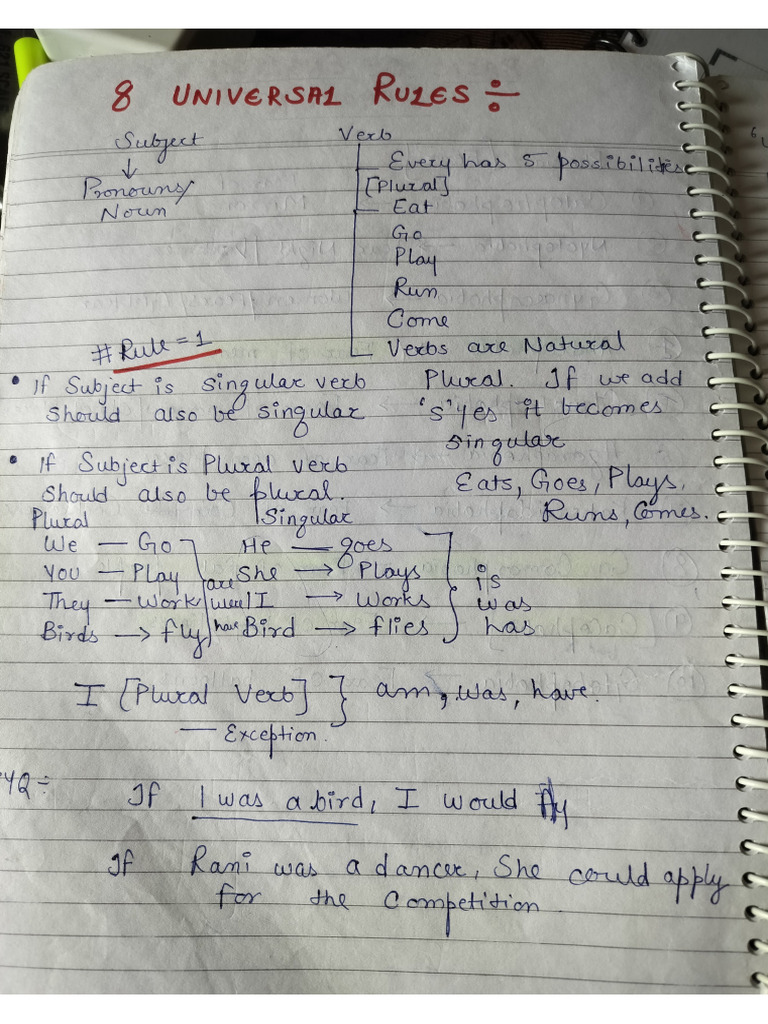 8 UNIVERSAL RULES ÷
Subject Verb
↓ Every has 5 possibilities
Pronouns/ [Plural]
Noun Eat
Go
Play
Run
Come
# Rule = 1 Verbs are Natural
• If Subject is singular verb Plural. If we add
should also be singular 's'/es it becomes
singular
• If Subject is Plural verb
should also be plural. Eats, Goes, Plays,
Plural Singular Runs, Comes.
We — Go He — goes
You — Play are She → Plays is
They — Work were I → Works was
Birds → fly have Bird → flies has
I [Plural Verb] } am, was, have.
— Exception.
YQ =
If I was a bird, I would fly
If Rani was a dancer, She could apply
for the Competition.